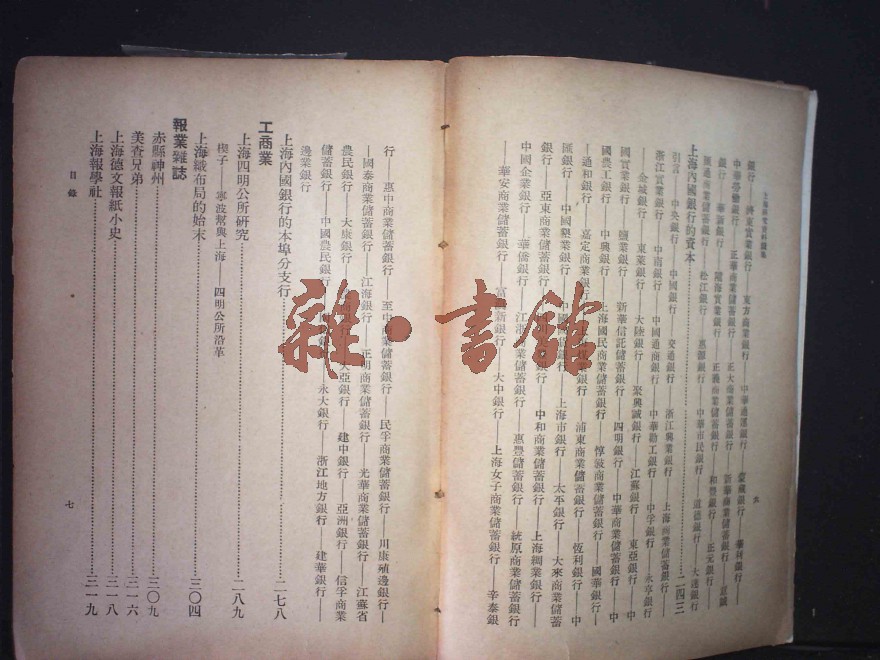 上海研究資料續集
六
銀行——勞東實業銀行——東方商業銀行——中華通運銀行——蒙藏銀行——華利銀行——
中華勞動銀行——正華商業儲蓄銀行——正大商業儲蓄銀行——新華商業儲蓄銀行——
銀行——華新銀行——正義商業儲蓄銀行——和豐銀行——正元銀行——
通商業儲蓄銀行——松江銀行——惠源銀行——中華市民銀行——道德銀行——大達銀行
上海內國銀行的資本……二四三
引言——中央銀行——中國銀行——交通銀行——浙江興業銀行——上海商業儲蓄銀行——
浙江實業銀行——中南銀行——中國通商銀行——中華勸工銀行——中孚銀行——永亨銀行
——金城銀行——東萊銀行——大陸銀行——聚興誠銀行——江蘇銀行——東亞銀行——中
國實業銀行——鹽業銀行——新華信託儲蓄銀行——四明銀行——中華商業儲蓄銀行——中
國農工銀行——中興銀行——上海國民商業儲蓄銀行——惇敍商業儲蓄銀行——國華銀行
——通和銀行——嘉定商業銀行——浦東商業儲蓄銀行——恆利銀行——中
匯銀行——中國墾業銀行——上海市銀行——太平銀行——大來商業儲蓄
銀行——亞東商業儲蓄銀行——中和商業儲蓄銀行——上海綢業銀行——
中國企業銀行——華僑銀行——江浙商業儲蓄銀行——惠豐儲蓄銀行——統原商業儲蓄銀行
——華安商業儲蓄銀行——富新銀行——大中銀行——上海女子商業儲蓄銀行——辛泰銀
行——惠中商業儲蓄銀行——至中商業儲蓄銀行——民孚商業儲蓄銀行——川康殖邊銀行——
——國泰商業儲蓄銀行——江海銀行——正明商業儲蓄銀行——光華商業儲蓄銀行——江蘇省
農民銀行——大康銀行——大亞銀行——建中銀行——亞洲銀行——信孚商業
儲蓄銀行——中國農民銀行——永大銀行——浙江地方銀行——建華銀行——
邊業銀行
上海內國銀行的本埠分支行……二七八
工商業
上海四明公所研究……二八九
楔子——寧波幫與上海——四明公所沿革
上海織布局的始末……三〇四
報業雜誌
赤縣神州……三〇九
美查兄弟……三一六
上海德文報紙小史……三一八
上海報學社……三一九
目錄
七
雜·書館